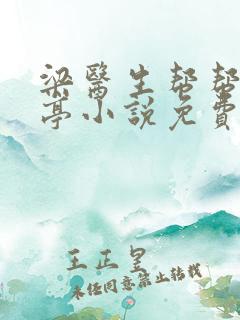 梁醫生幫幫
亭小說免費
王正皇
未经同意禁止转载